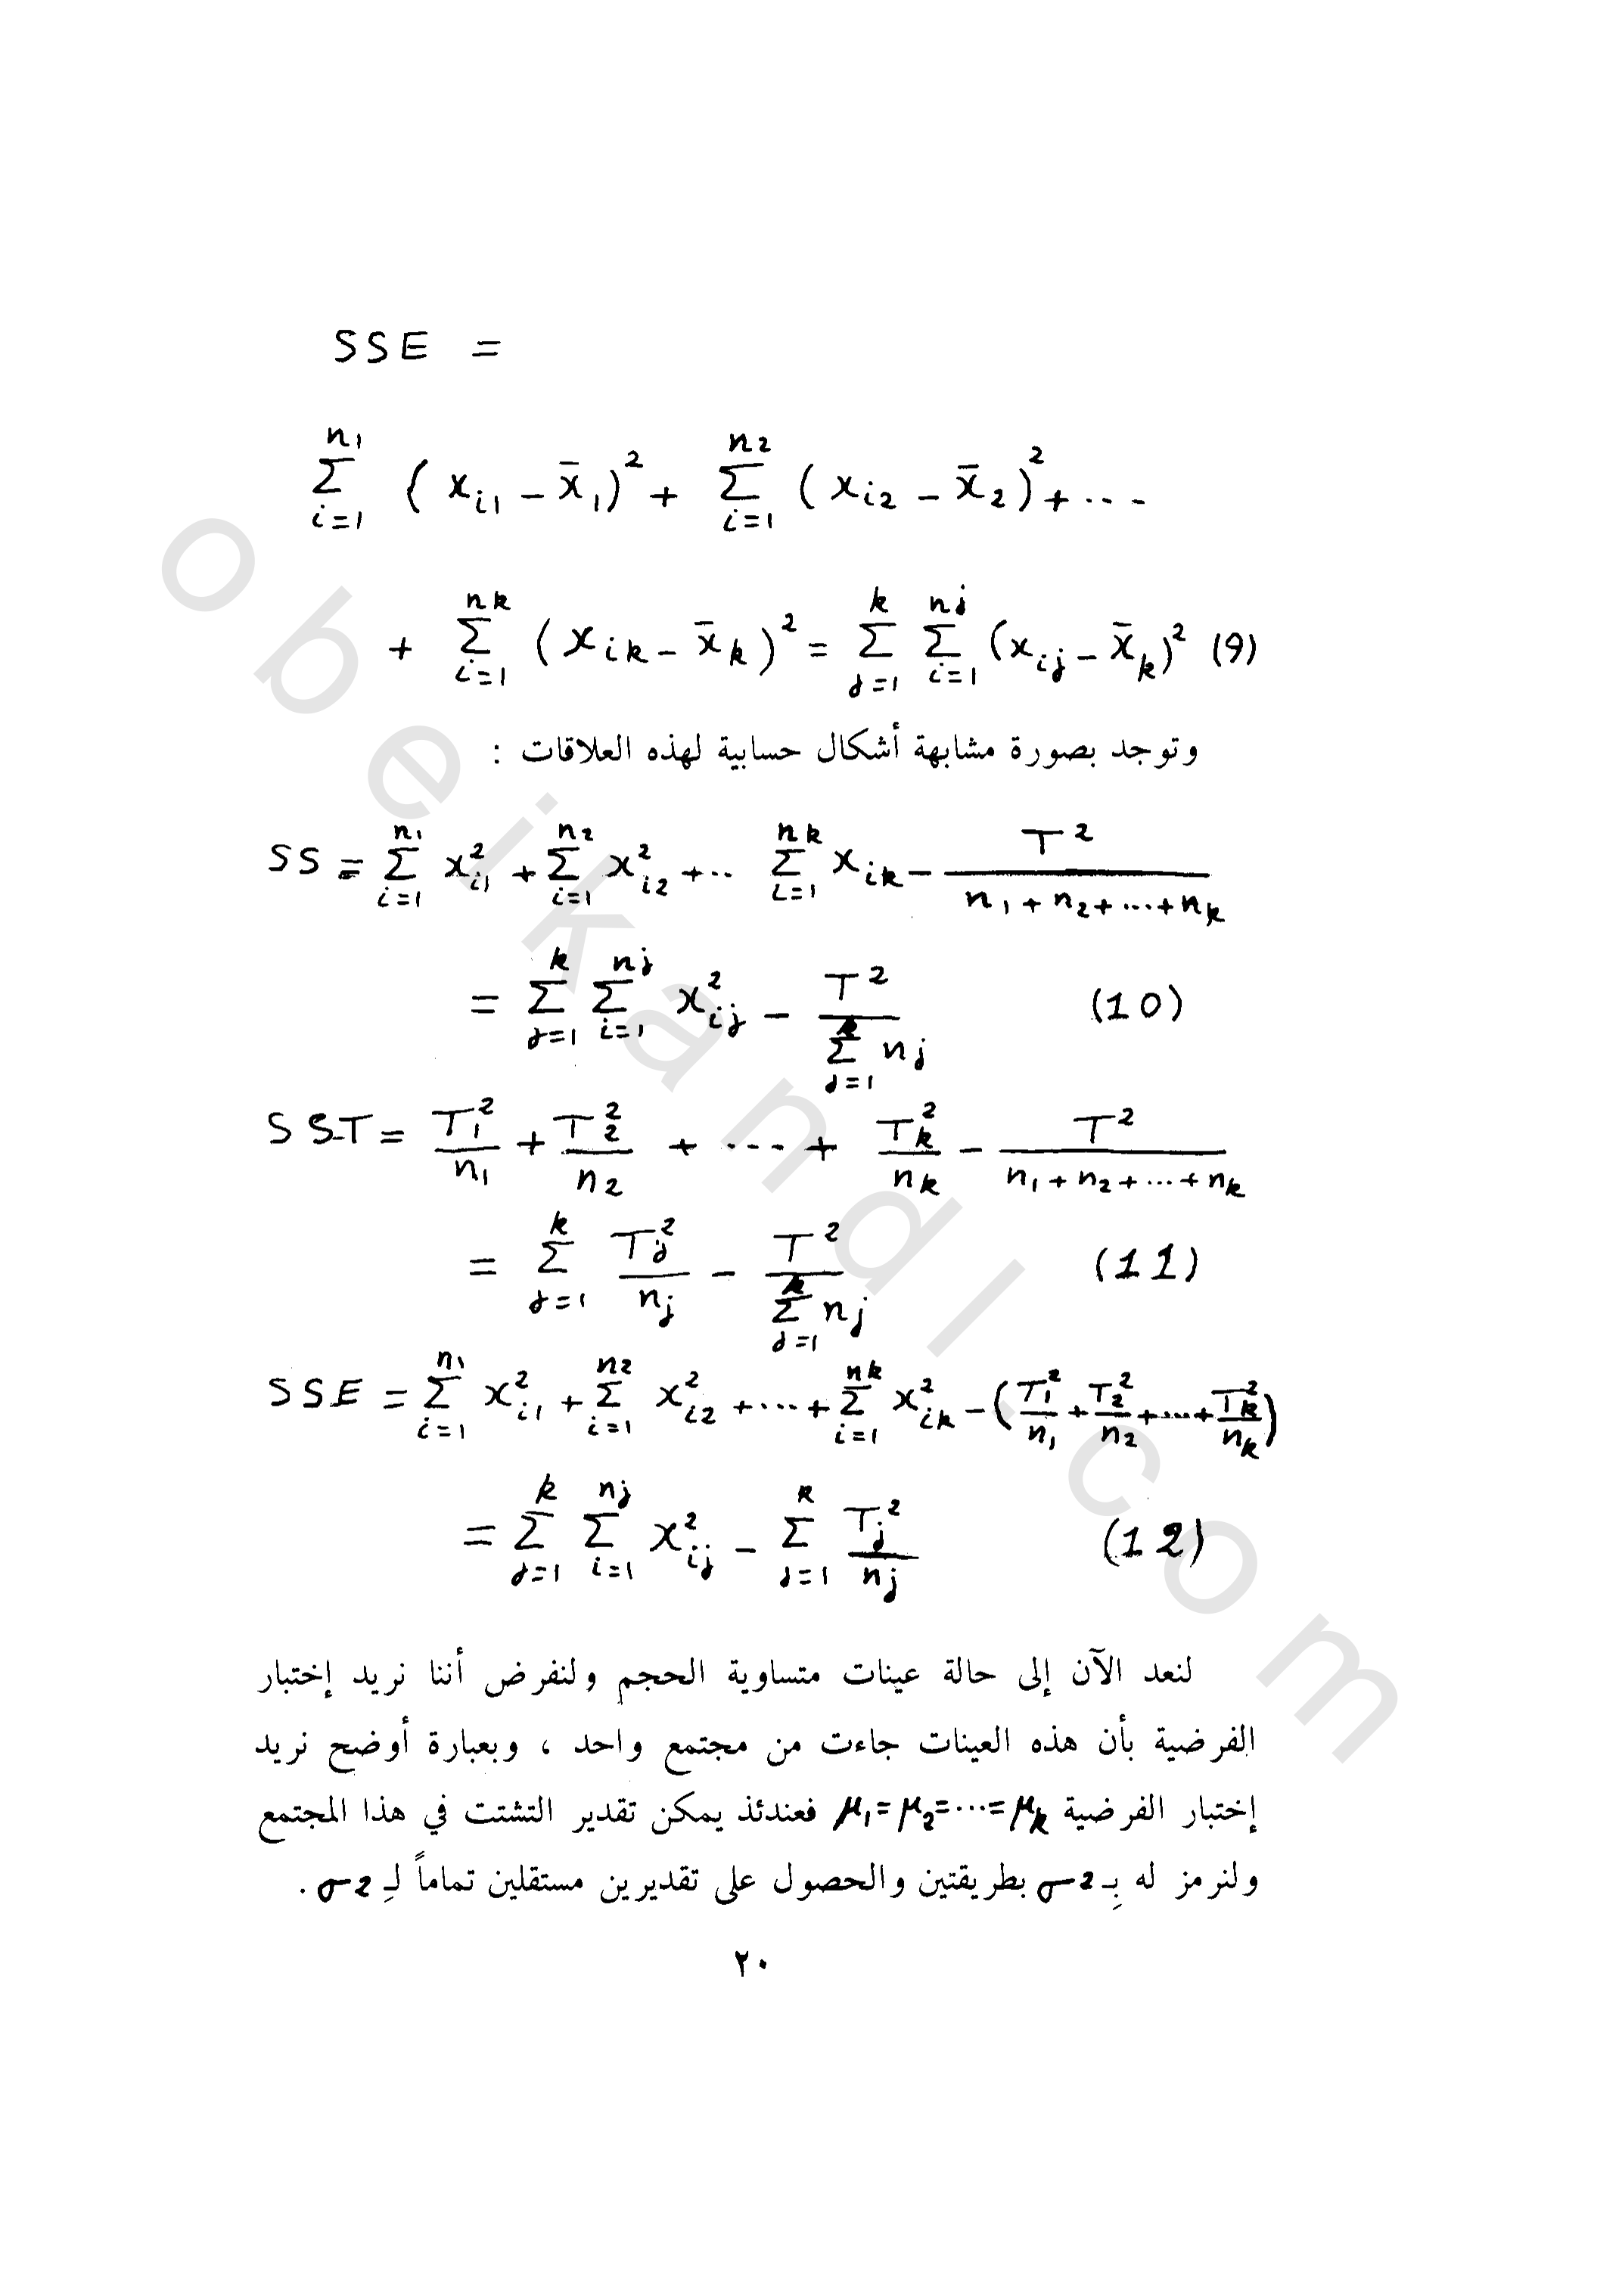 SSE =
\sum_{i=1}^{n_1} (x_{i1} - \bar{x}_1)^2 + \sum_{i=1}^{n_2} (x_{i2} - \bar{x}_2)^2 + ...
+ \sum_{i=1}^{n_k} (x_{ik} - \bar{x}_k)^2 = \sum_{j=1}^{k} \sum_{i=1}^{n_j} (x_{ij} - \bar{x}_k)^2 (9)
وتوجد بصورة مشابهة أشكال حسابية لهذه العلاقات :
SS = \sum_{i=1}^{n_1} x_{i1}^2 + \sum_{i=1}^{n_2} x_{i2}^2 + .. \sum_{i=1}^{n_k} x_{ik} - \frac{T^2}{n_1 + n_2 + ... + n_k}
= \sum_{j=1}^{k} \sum_{i=1}^{n_j} x_{ij}^2 - \frac{T^2}{\sum_{j=1}^{k} n_j} (10)
SST = \frac{T_1^2}{n_1} + \frac{T_2^2}{n_2} + ... + \frac{T_k^2}{n_k} - \frac{T^2}{n_1 + n_2 + ... + n_k}
= \sum_{j=1}^{k} \frac{T_j^2}{n_j} - \frac{T^2}{\sum_{j=1}^{k} n_j} (11)
SSE = \sum_{i=1}^{n_1} x_{i1}^2 + \sum_{i=1}^{n_2} x_{i2}^2 + ... + \sum_{i=1}^{n_k} x_{ik}^2 - (\frac{T_1^2}{n_1} + \frac{T_2^2}{n_2} + ... + \frac{T_k^2}{n_k})
= \sum_{j=1}^{k} \sum_{i=1}^{n_j} x_{ij}^2 - \sum_{j=1}^{k} \frac{T_j^2}{n_j} (12)
لنعد الآن إلى حالة عينات متساوية الحجم ولنفرض أننا نريد إختبار
الفرضية بأن هذه العينات جاءت من مجتمع واحد ، وبعبارة أوضح نريد
إختبار الفرضية μ_1 = μ_2 = ... = μ_k فعندئذ يمكن تقدير التشتت في هذا المجتمع
ولنرمز له بِـ σ2 بطريقتين والحصول على تقديرين مستقلين تماماً لـِ σ2 .
٢٠
obeikandl.com